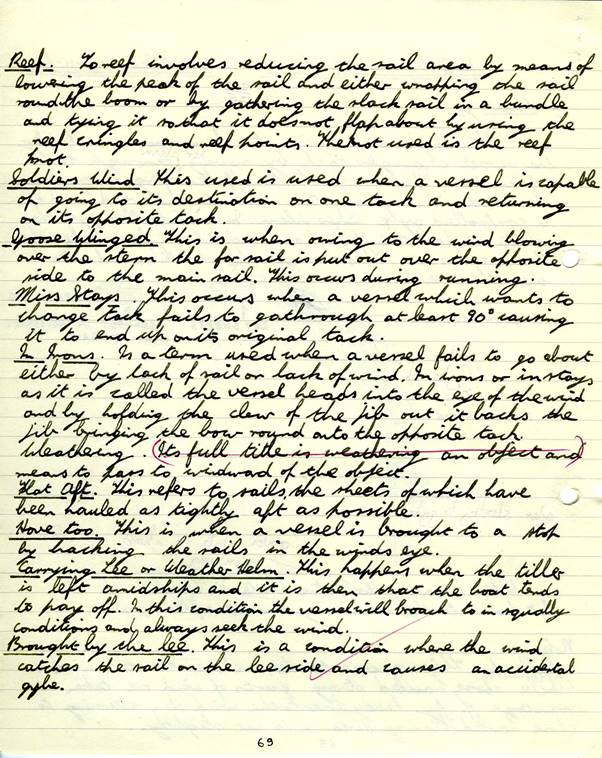 Reef. To reef involves reducing the sail area by means of
lowering the peak of the sail and either wrapping the sail
round the boom or by gathering the slack sail in a bundle
and tying it so that it does not flap about by using the
reef cringles and reef points. The knot used is the reef
knot.
Soldiers Wind This used is used when a vessel is capable
of going to its destination on one tack and returning
on its opposite tack.
Goose Winged This is when owing to the wind blowing
over the stern the for sail is put out over the opposite
side to the main sail. This occurs during running.
Miss Stays. This occurs when a vessel which wants to
change tack fails to go through at least 90° causing
it to end up on its original tack.
In Irons. Is a term used when a vessel fails to go about
either by lack of sail or lack of wind. In irons or in stays
as it is called the vessel heads into the eye of the wind
and by holding the clew of the jib out it backs the
jib bringing the bow round onto the opposite tack.
Weathering. (Its full title is weathering an object and)
means to pass to windward of the object.
Flat Aft. This refers to sails, the sheets of which have
been hauled as tightly aft as possible.
Hove too. This is when a vessel is brought to a stop
by backing the sails in the winds eye.
Carrying Lee or Weather Helm. This happens when the tiller
is left amidships and it is then that the boat tends
to pay off. In this condition the vessel will broach to in squally
conditions and always seek the wind.
Brought by the lee. This is a condition where the wind
catches the sail on the lee side and causes an accidental
gybe.
69